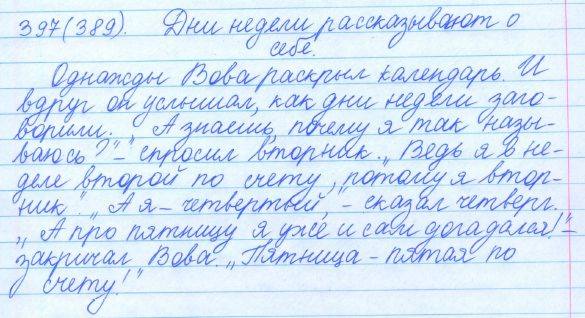 397(389). Дни недели рассказывают о
себе.
Однажды Вова раскрыл календарь. И
вдруг он услышал, как дни недели заго-
ворили. „А знаешь, почему я так назы-
ваюсь?" - спросил вторник. „Ведь я в не-
деле второй по счету, потому я втор-
ник". „А я - четвертый," - сказал четверг.
„А про пятницу я уже и сам догадался!" -
закричал Вова. „Пятница - пятая по
счету!"